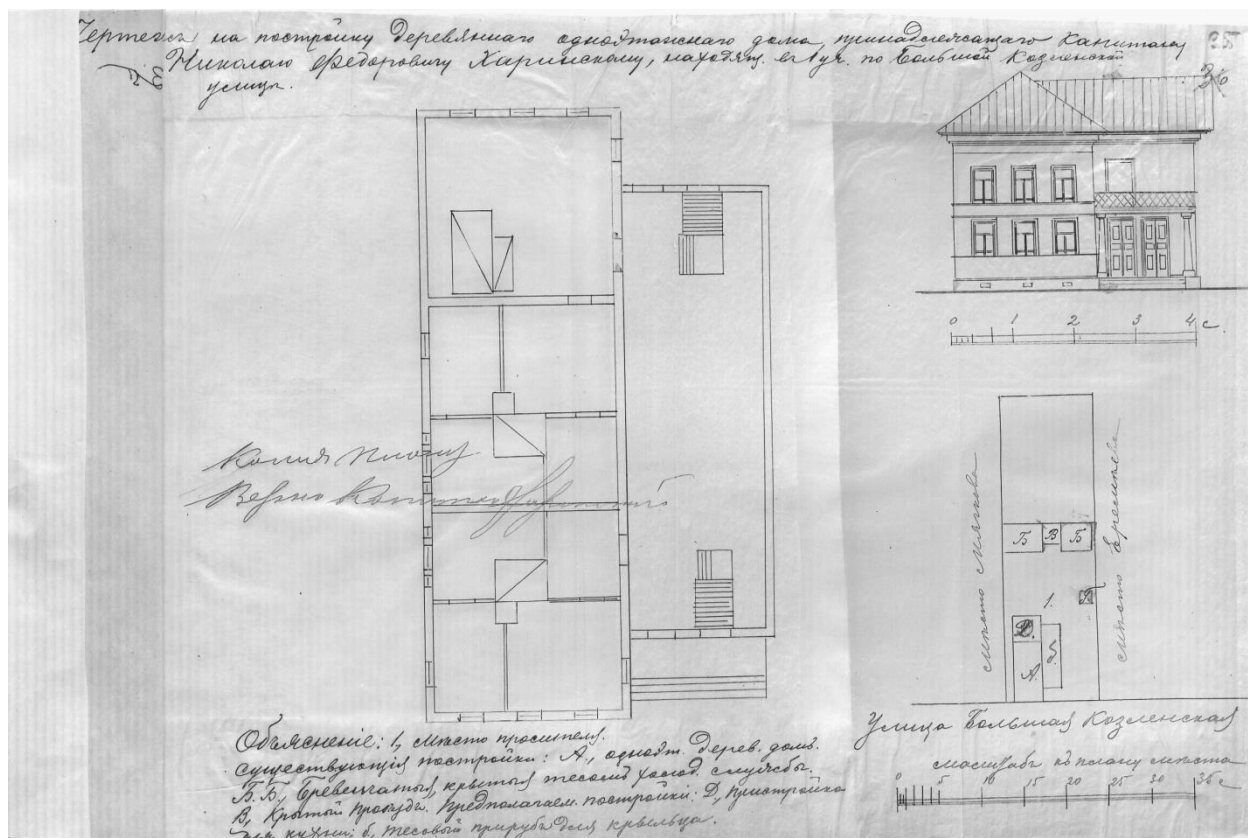 Чертежъ на постройку деревяннаго одноэтажнаго дома, принадлежащаго Капитану
Николаю Федоровичу Хиринскому, находящ. въ 1 уч. по Большой Козленской
улицѣ.
0 1 2 3 4 с.
Копія плану
Вѣрно Капитанъ
мѣсто
мѣсто
Б В Б
1.
Д.
А.
Улица Большая Козленская
масштабъ къ плану мѣста
0 5 10 15 20 25 30 35 с
Объясненіе: 1, мѣсто просителя.
существующія постройки: А, одноэт. дерев. домъ.
Б. Б, бревенчатыя, крытыя тесомъ холод. службы.
В, крытый проѣздъ. Предполагаем. постройки: Д, пристройка
для кухни; б, тесовый прирубъ для крыльца.